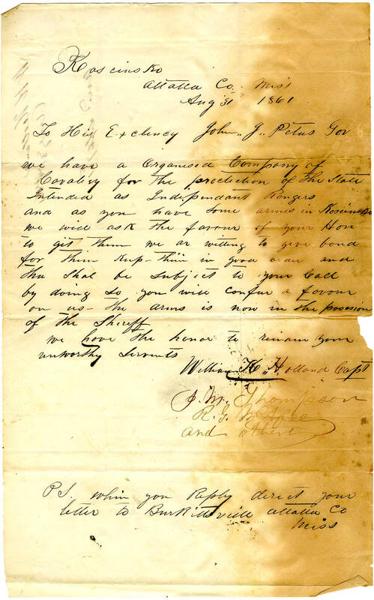 Kosciusko
Attalla Co. Miss
Aug 31 1861
To His Exclency John. J. Petus Gov
we have a Organised Company of
Cavalry for the proctection of the State
Intended as Independant Rangers
and as you have some armes in Kosciusko
we will ask the favour of your Hon
to git them we ar willing to give bond
for them Kup-thin in good and
Thu Shal be Subject to your Call
by doing so you will confur a favour
on us - the arms is now in the possesion
of the Sheriff
we have the honor to remain your
unworthy Sirvnts
William H. Holland Capt
J. M. Thompson
R. G.
and
PS. when you Reply direct your
letter to Burkittsville attalla Co
Miss